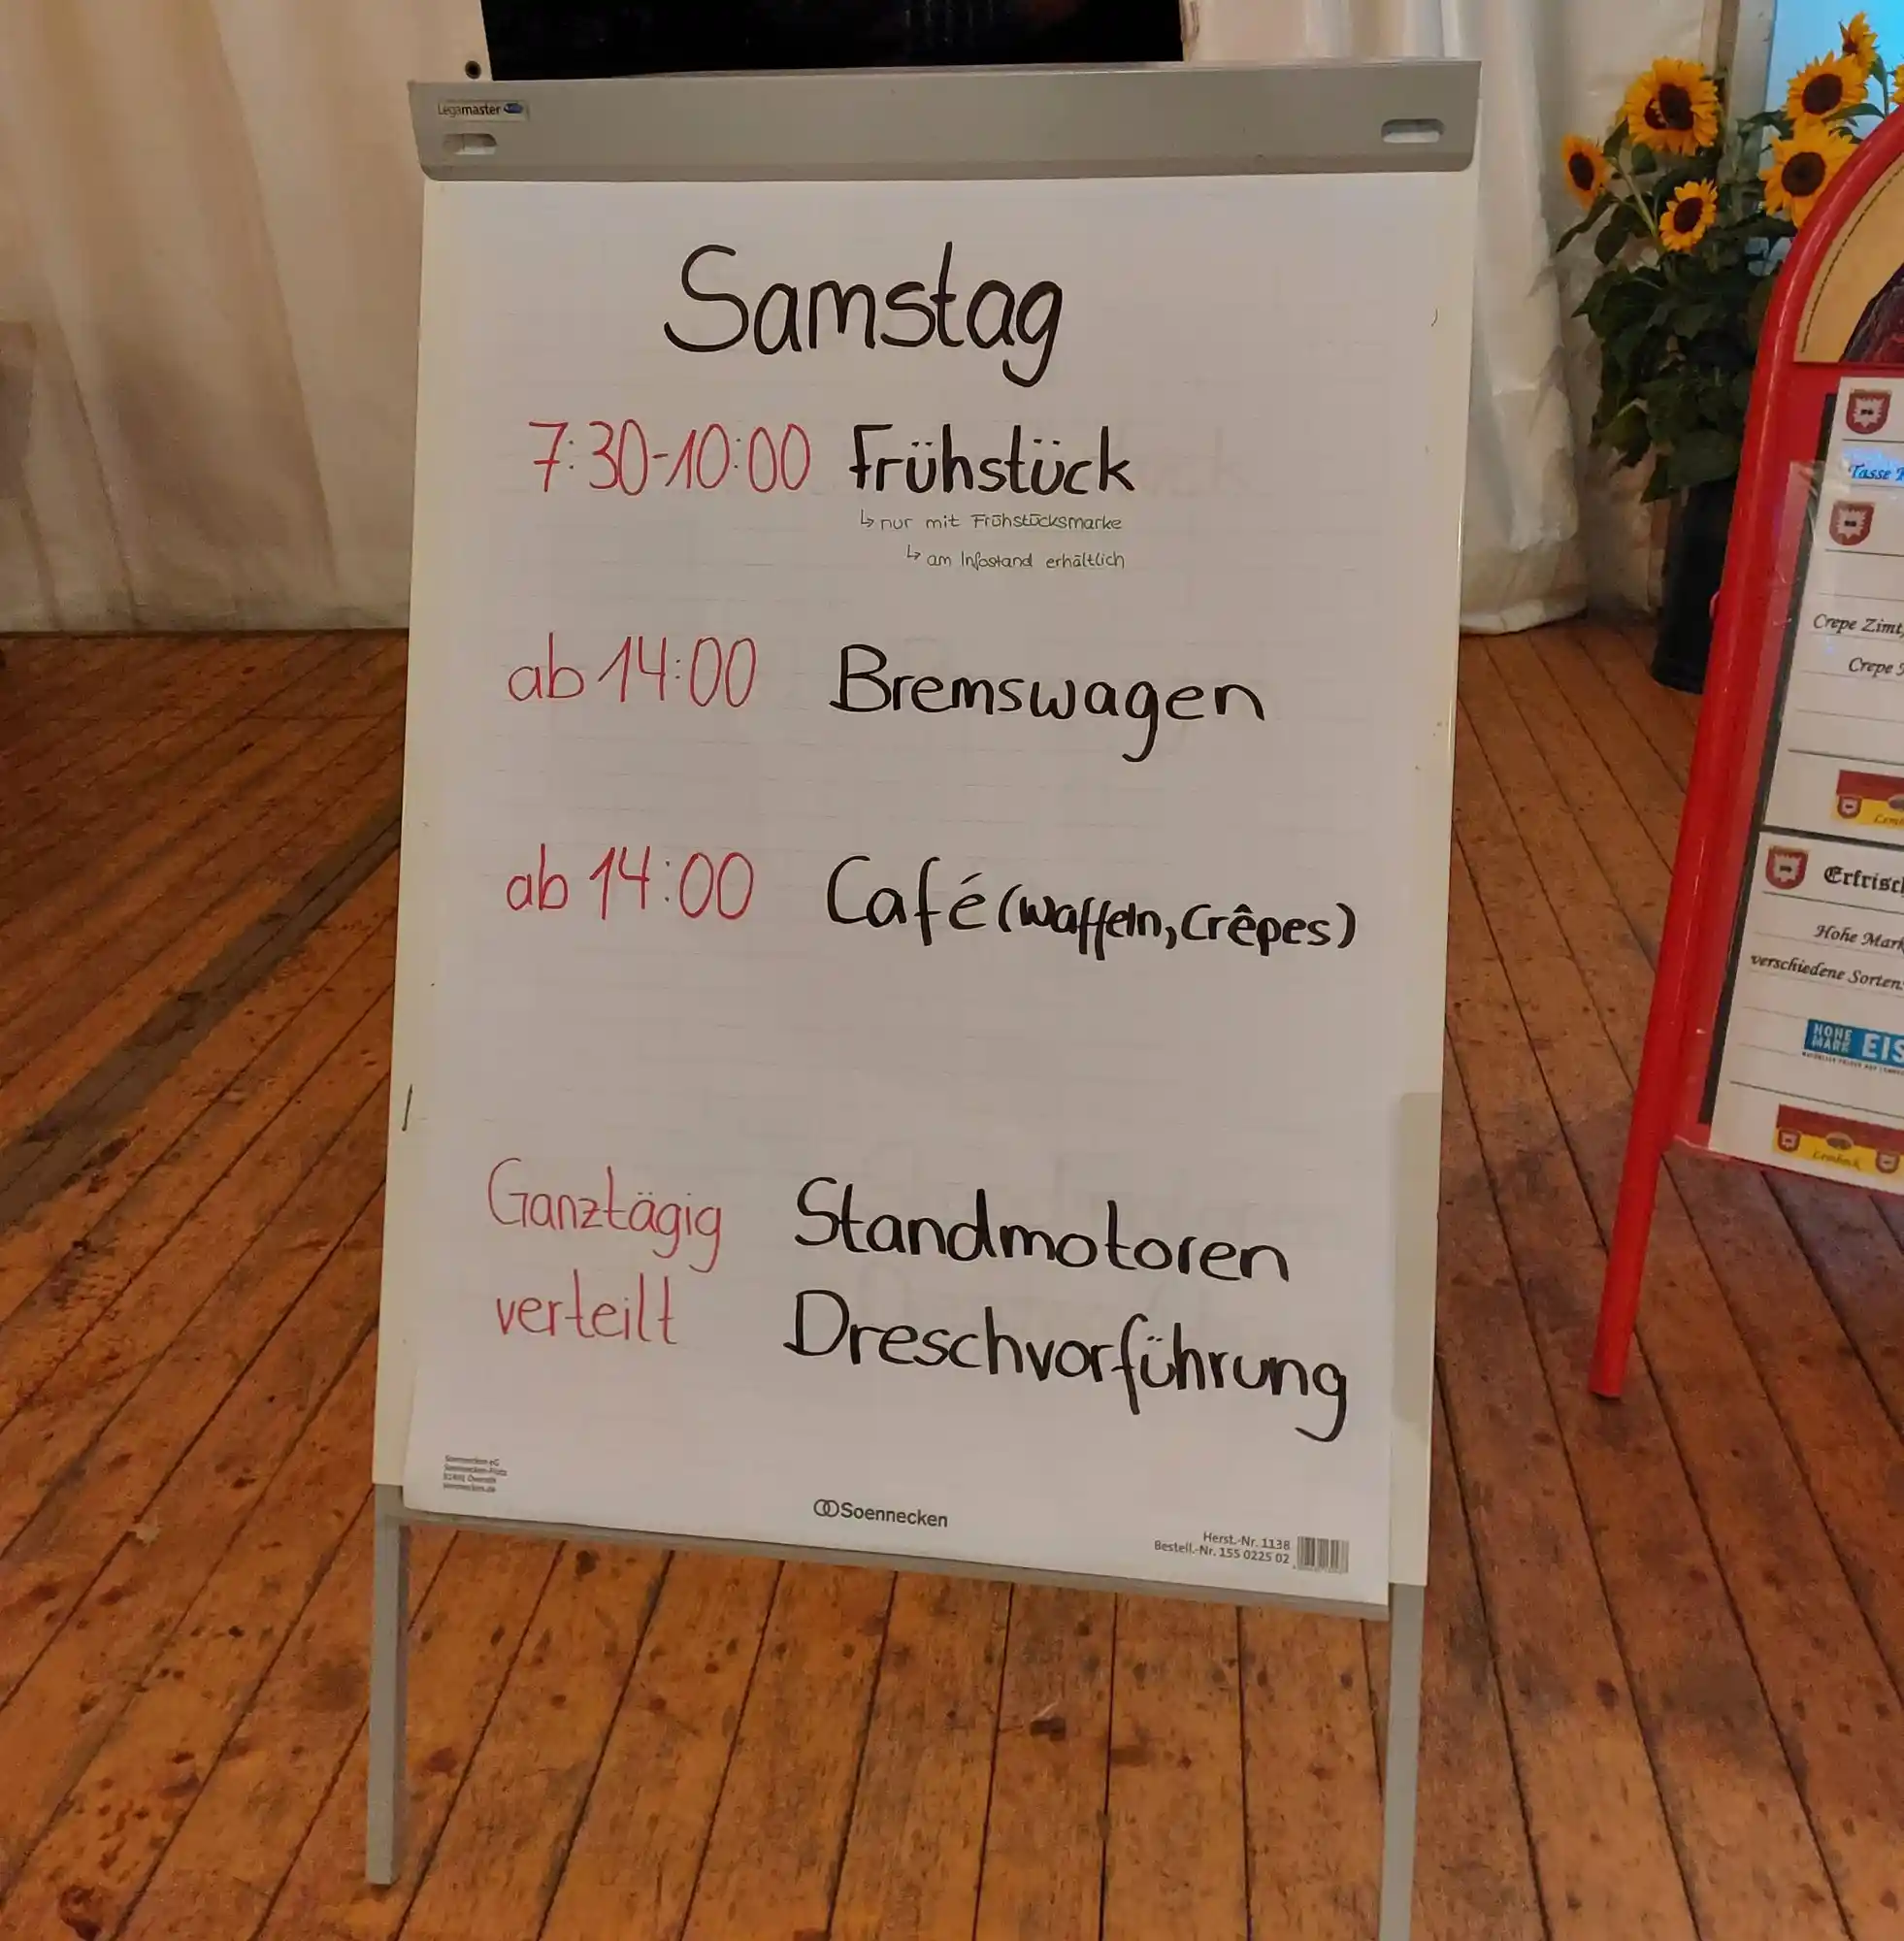 Legamaster
Samstag
7:30-10:00 Frühstück
↳ nur mit Frühstücksmarke
↳ am Infostand erhältlich
ab 14:00 Bremswagen
ab 14:00 Café (Waffeln, Crêpes)
Ganztägig Standmotoren
verteilt Dreschvorführung
Soennecken eG
Soennecken-Platz
51491 Overath
soennecken.de
Soennecken
Herst.-Nr. 1138
Bestell.-Nr. 155 0225 02
Tasse
Crepe Zimt,
Crepe
Erfrisch
Hohe Mark
verschiedene Sorten
HOHE
MARK EIS
Lembeck